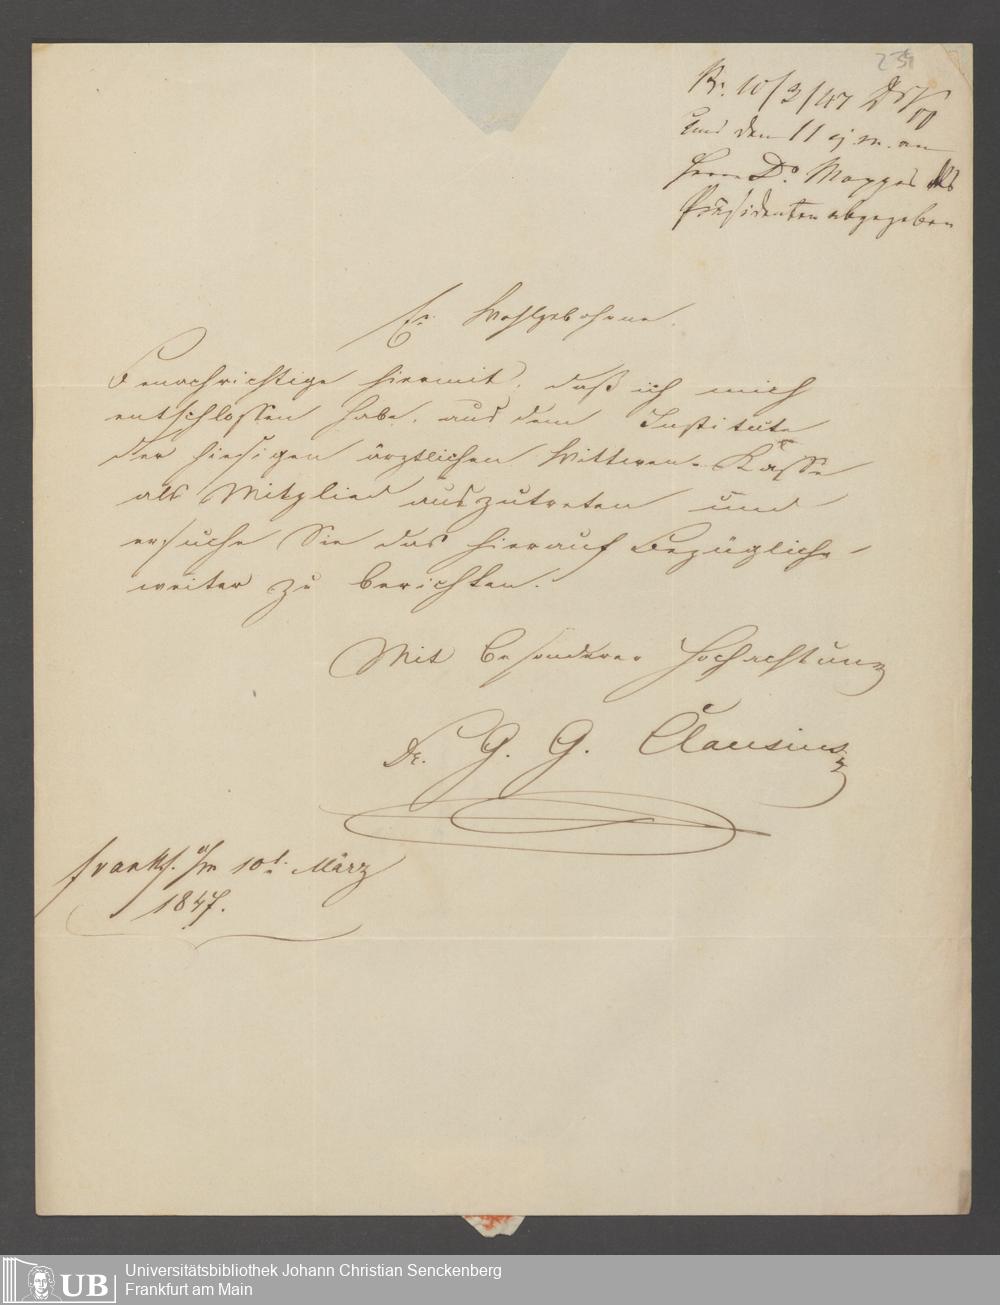 231
Pr. 10/3/47
und den 11 ej. m. an
Herrn Dr. Mappes als
Präsidenten abgegeben
Ew. Wohlgeboren
benachrichtige hiermit, daß ich mich
entschlossen habe, aus dem Institute
der hiesigen ärztlichen Wittwen-Kasse
als Mitglied auszutreten und
ersuche Sie das hierauf Bezügliche
weiter zu berichten.
Mit besonderer Hochachtung
Dr. G. G. Clausius
Frankf. a/m 10t. März
1847.
UB Universitätsbibliothek Johann Christian Senckenberg
Frankfurt am Main